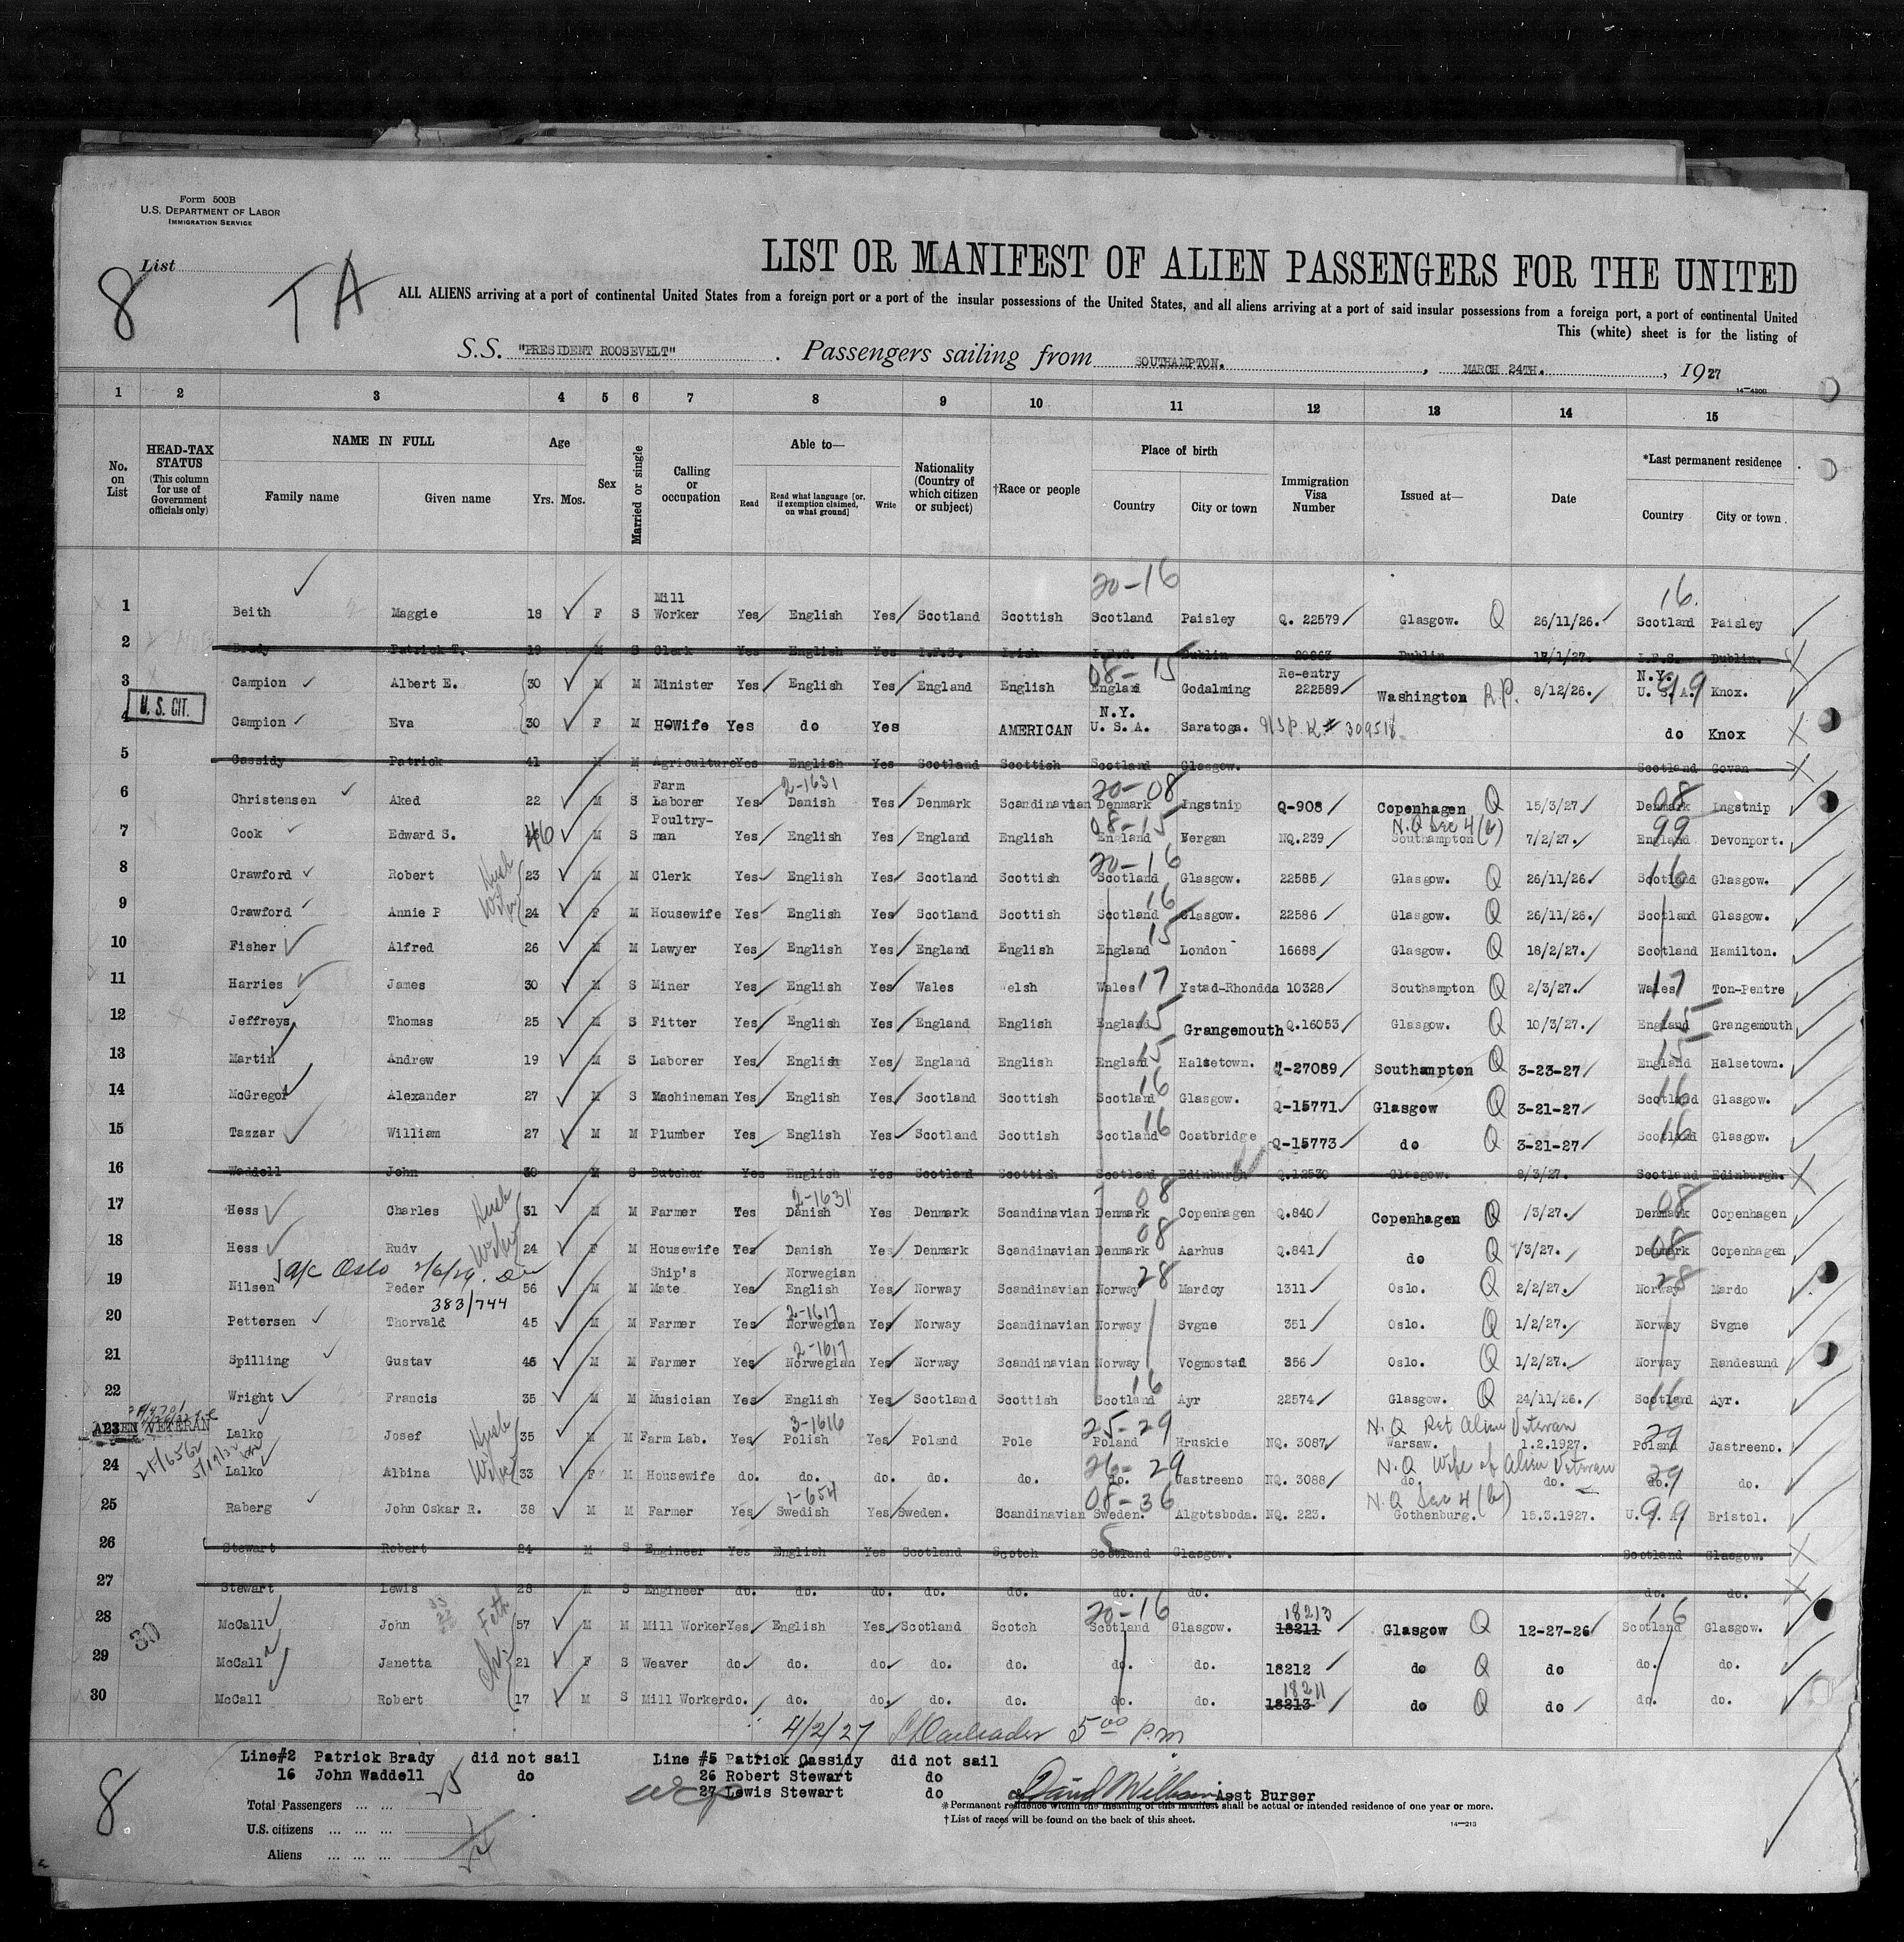 Form 500B
U.S. DEPARTMENT OF LABOR
IMMIGRATION SERVICE
List
8
TA
LIST OR MANIFEST OF ALIEN PASSENGERS FOR THE UNITED
ALL ALIENS arriving at a port of continental United States from a foreign port or a port of the insular possessions of the United States, and all aliens arriving at a port of said insular possessions from a foreign port, a port of continental United
This (white) sheet is for the listing of
S.S. "PRESIDENT ROOSEVELT" . Passengers sailing from SOUTHAMPTON. , MARCH 24TH. , 1927
1 2 3 4 5 6 7 8 9 10 11 12 13 14 15
No. on List
HEAD-TAX STATUS (This column for use of Government officials only)
NAME IN FULL Family name Given name
Age Yrs. Mos.
Sex
Married or single
Calling or occupation
Able to— Read Read what language [or, if exemption claimed, on what ground] Write
Nationality (Country of which citizen or subject)
†Race or people
Place of birth Country City or town
Immigration Visa Number
Issued at—
Date
*Last permanent residence Country City or town
20-16 16.
1 Beith Maggie 18 F S Mill Worker Yes English Yes Scotland Scottish Scotland Paisley Q. 22579 Glasgow. Q 26/11/26. Scotland Paisley
2 Brady Patrick T. 19 M S Clerk Yes English Yes I.F.S. Irish I.F.S. Dublin 20863 Dublin 17/1/27. I.F.S. Dublin.
3 Campion Albert E. 30 M M Minister Yes English Yes England English England 08-15 Godalming Re-entry 222589 Washington R.P. 8/12/26. N.Y. U. S. A. 99 Knox.
U. S. CIT.
4 Campion Eva 30 F M HOWife Yes do Yes AMERICAN N.Y. U. S. A. Saratoga. 309518 do Knox
5 Cassidy Patrick 41 M M Agriculture Yes English Yes Scotland Scottish Scotland Glasgow. Scotland Govan
6 Christensen Aked 22 M S Farm Laborer Yes 2-1631 Danish Yes Denmark Scandinavian 20-08 Denmark Ingstnip Q-908 Copenhagen Q 15/3/27. 08 Denmark Ingstnip
7 Cook Edward S. 46 M S Poultry-man Yes English Yes England English 08-15 England Bergan NQ.239 N.Q Sec 4(b) Southampton 7/2/27. 99 England Devonport.
8 Crawford Robert Husb 23 M M Clerk Yes English Yes Scotland Scottish 20-16 Scotland Glasgow. 22585 Glasgow. Q 26/11/26. 16 Scotland Glasgow.
9 Crawford Annie P Wife 24 F M Housewife Yes English Yes Scotland Scottish 16 Scotland Glasgow. 22586 Glasgow. Q 26/11/26. Scotland Glasgow.
10 Fisher Alfred 26 M M Lawyer Yes English Yes England English 15 England London 16688 Glasgow. Q 18/2/27. Scotland Hamilton.
11 Harries James 30 M S Miner Yes English Yes Wales Welsh Wales 17 Ystad-Rhondda 10328 Southampton Q 2/3/27. 17 Wales Ton-Pentre
12 Jeffreys Thomas 25 M S Fitter Yes English Yes England English England 15 Grangemouth Q.16053 Glasgow. Q 10/3/27. 15 England Grangemouth
13 Martin Andrew 19 M S Laborer Yes English Yes England English England 15 Halsetown. Q-27089 Southampton Q 3-23-27 15 England Halsetown.
14 McGregor Alexander 27 M S Machineman Yes English Yes Scotland Scottish Scotland 16 Glasgow. Q-15771 Glasgow Q 3-21-27 16 Scotland Glasgow.
15 Tazzar William 27 M M Plumber Yes English Yes Scotland Scottish Scotland 16 Coatbridge Q-15773 do Q 3-21-27 16 Scotland Glasgow.
16 Waddell John 30 M S Butcher Yes English Yes Scotland Scottish Scotland Edinburgh Q.12530 Glasgow. 8/3/27. Scotland Edinburgh.
17 Hess Charles Husb 31 M M Farmer Yes 2-1631 Danish Yes Denmark Scandinavian Denmark 08 Copenhagen Q.840 Copenhagen Q /3/27. 08 Denmark Copenhagen
18 Hess Rudv Wife 24 F M Housewife Yes Danish Yes Denmark Scandinavian Denmark 08 Aarhus Q.841 do Q /3/27. 08 Denmark Copenhagen
a/c Oslo 383/744
19 Nilsen Peder 56 M M Ship's Mate Yes Norwegian English Yes Norway Scandinavian Norway 28 Mardoy 1311 Oslo. Q 2/2/27. 28 Norway Mardo
20 Pettersen Thorvald 45 M M Farmer Yes 2-1617 Norwegian Yes Norway Scandinavian Norway Svgne 351 Oslo. Q 1/2/27. Norway Svgne
21 Spilling Gustav 46 M M Farmer Yes 2-1617 Norwegian Yes Norway Scandinavian Norway Vogmostad 356 Oslo. Q 1/2/27. Norway Randesund
22 Wright Francis 35 M M Musician Yes English Yes Scotland Scottish Scotland 16 Ayr 22574 Glasgow. Q 24/11/26. 16 Scotland Ayr.
ALIEN VETERAN
23 Lalko Josef Husb 35 M M Farm Lab. Yes 3-1616 Polish Yes Poland Pole 25-29 Poland Hruskie NQ. 3087 N.Q Ret Alien Veteran Warsaw. 1.2.1927. 29 Poland Jastreeno.
24 Lalko Albina Wife 33 F M Housewife do. do. do. do. do. 26-29 do. Jastreeno NQ. 3088 N.Q Wife of Alien Veteran do. do. 29 do. do.
25 Raberg John Oskar R. 38 M M Farmer Yes 1-654 Swedish Yes Sweden. Scandinavian 08-36 Sweden. Algotsboda. NQ. 223. N.Q Sec 4(b) Gothenburg. 15.3.1927. U.S.A. 99 Bristol.
26 Stewart Robert 24 M S Engineer Yes English Yes Scotland Scotch Scotland Glasgow. Scotland Glasgow.
27 Stewart Lewis 28 M S Engineer do. do. do. do. do. do. do. do. do.
28 30 McCall John Fath 57 M M Mill Worker Yes English Yes Scotland Scotch 20-16 Scotland Glasgow. 18213 18211 Glasgow Q 12-27-26 16 Scotland Glasgow.
29 McCall Janetta 21 F S Weaver do do. do do. do. do. do. 18212 do Q do do. do.
30 McCall Robert 17 M S Mill Worker do. do. do. do. do. do. do. 18211 18213 do Q do do. do.
4/2/27 5 00 p.m
Line#2 Patrick Brady did not sail Line #5 Patrick Cassidy did not sail
16 John Waddell do 26 Robert Stewart do
27 Lewis Stewart do Asst Burser
8
Total Passengers ... ... 25
U.S. citizens ... ... ... 1
Aliens ... ... ... 24
*Permanent residence within the meaning of this manifest shall be actual or intended residence of one year or more.
†List of races will be found on the back of this sheet.
14—213